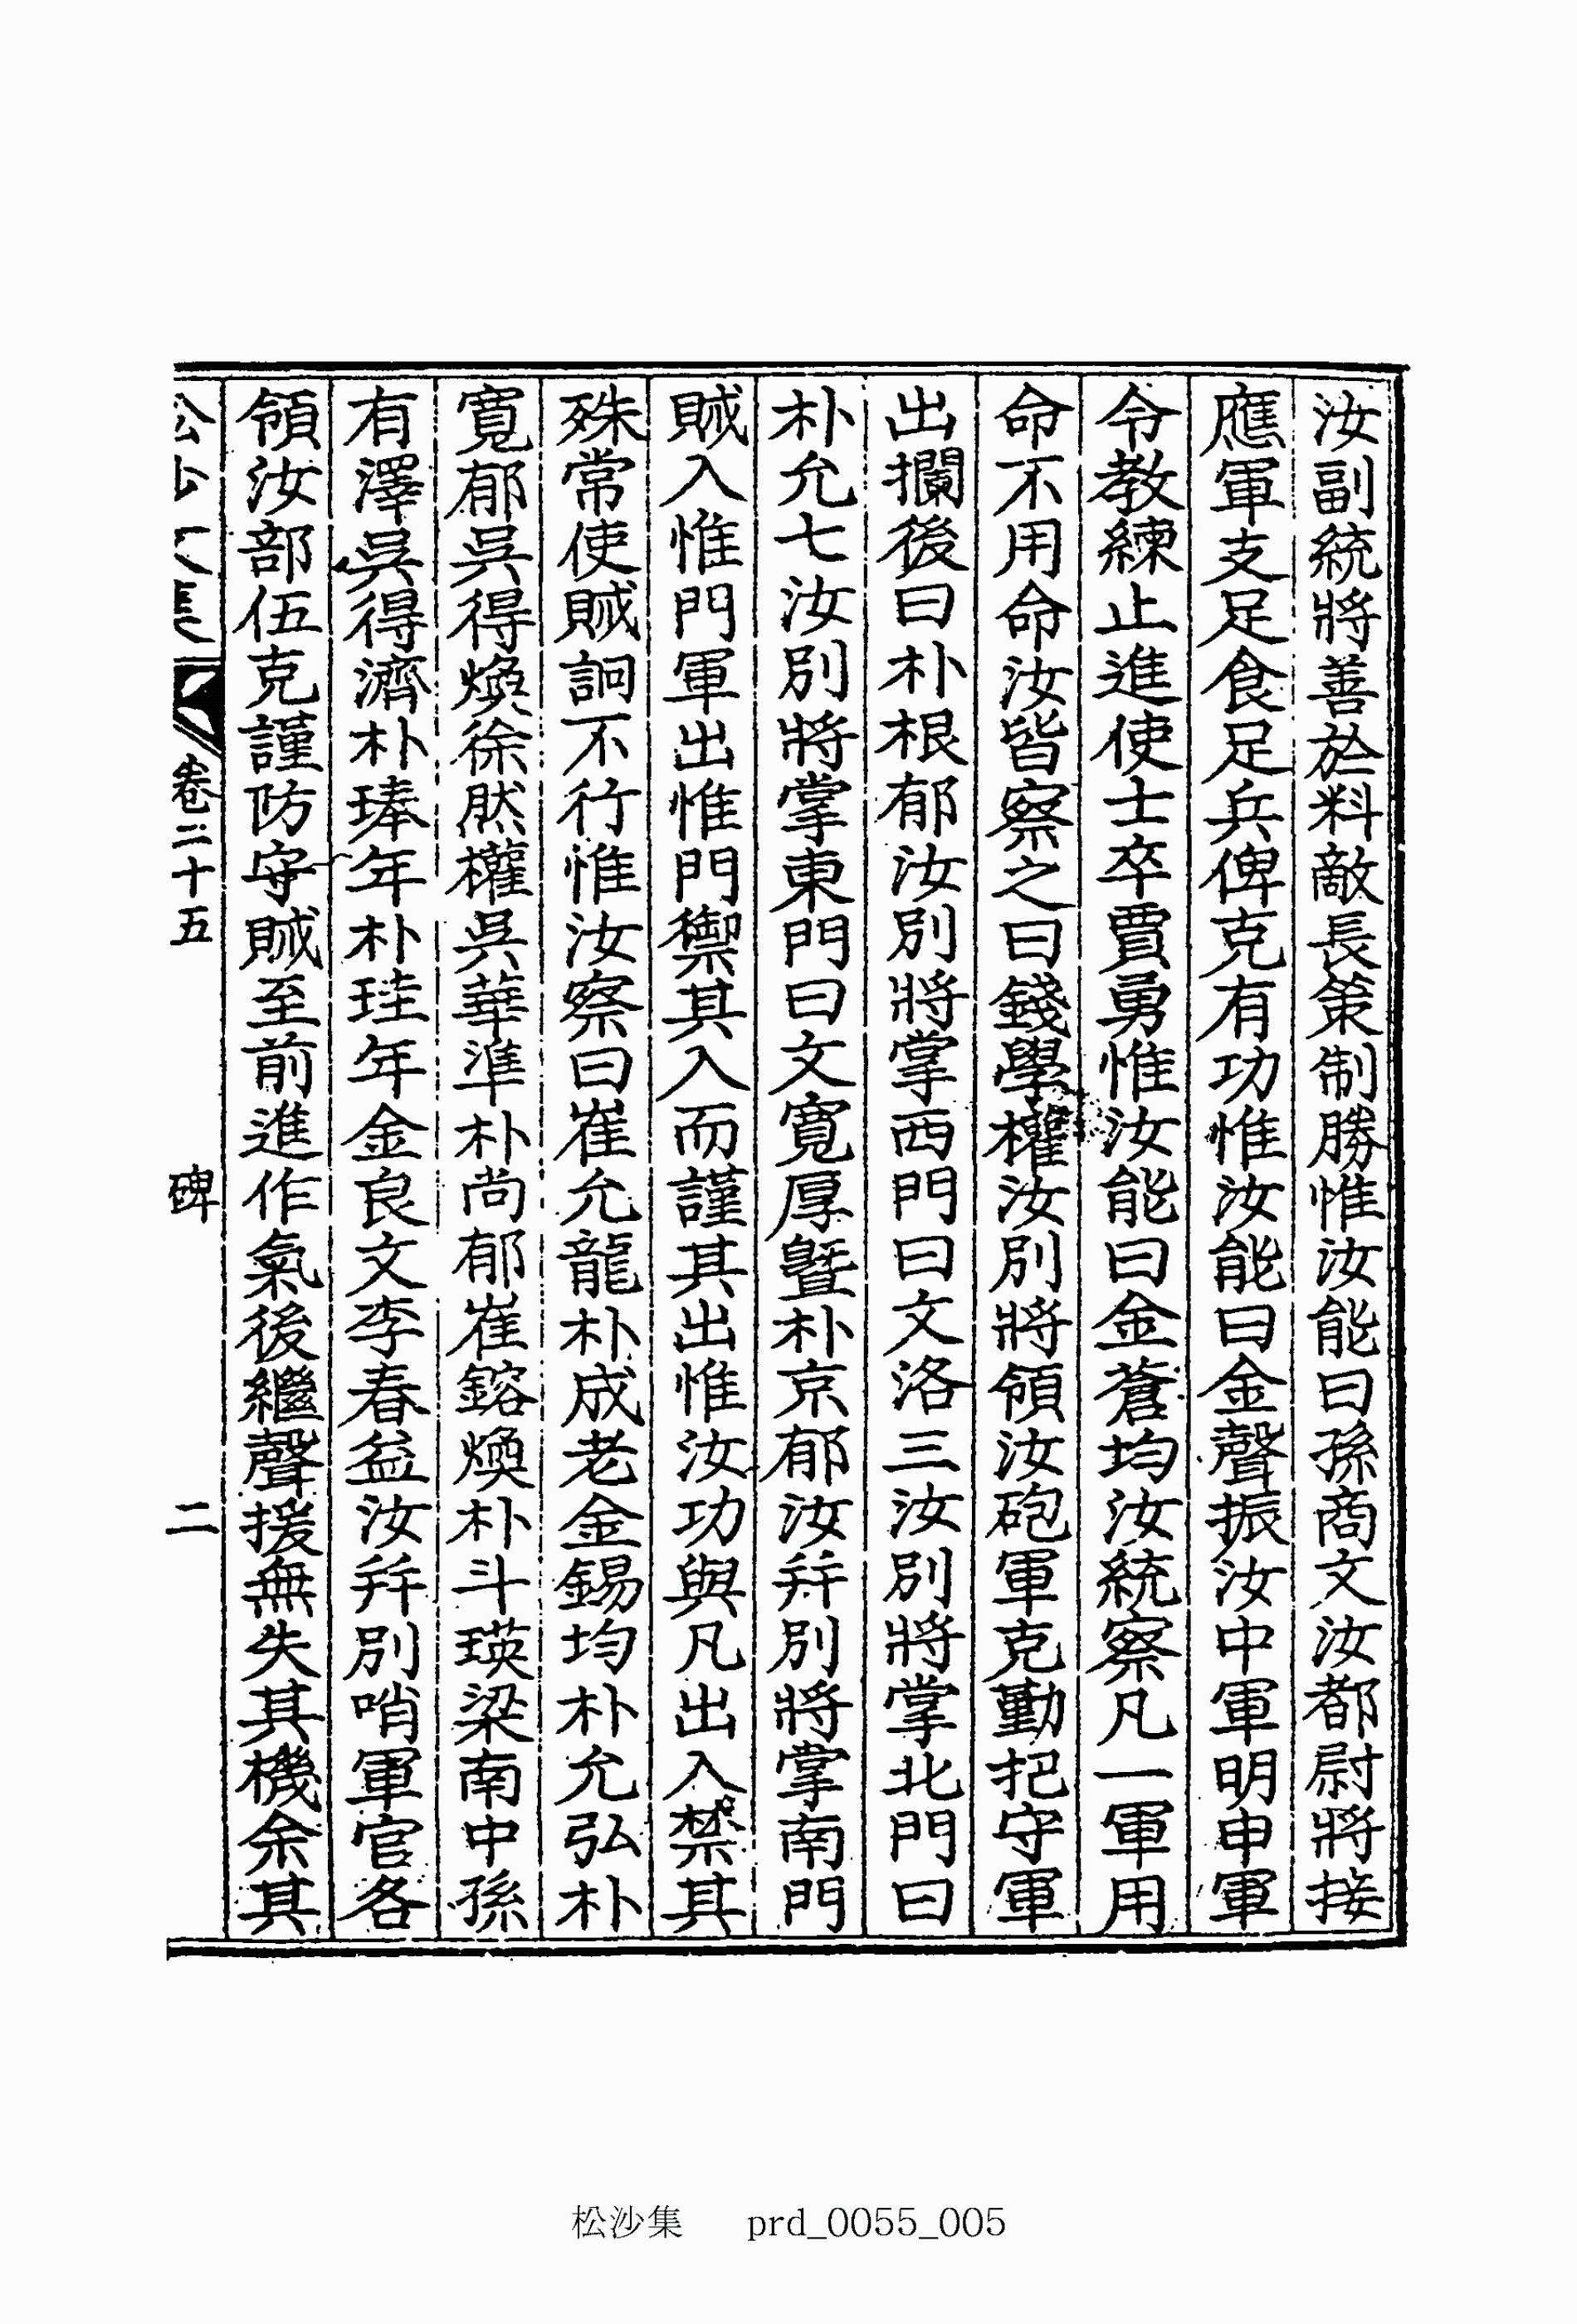 汝副統將善於料敵長策制勝惟汝能曰孫商文汝都尉將接
應軍支足食足兵俾克有功惟汝能曰金聲振汝中軍明申軍
令教練止進使士卒賈勇惟汝能曰金蒼均汝統察凡一軍用
命不用命汝皆察之曰錢學權汝別將領汝砲軍克勤把守軍
出攔後曰朴根郁汝別將掌西門曰文洛三汝別將掌北門曰
朴允七汝別將掌東門曰文寬厚曁朴京郁汝幷別將掌南門
賊入惟門軍出惟門禦其入而謹其出惟汝功與凡出入禁其
殊常使賊詗不行惟汝察曰崔允龍朴成老金錫均朴允弘朴
寬郁吳得煥徐肰權吳華準朴尚郁崔鎔煥朴斗瑛梁南中孫
有澤吳得濟朴琫年朴珪年金良文李春益汝幷別哨軍官各
領汝部伍克謹防守賊至前進作氣後繼聲援無失其機余其
松沙文集 卷二十五 碑 二
松沙集 prd_0055_005